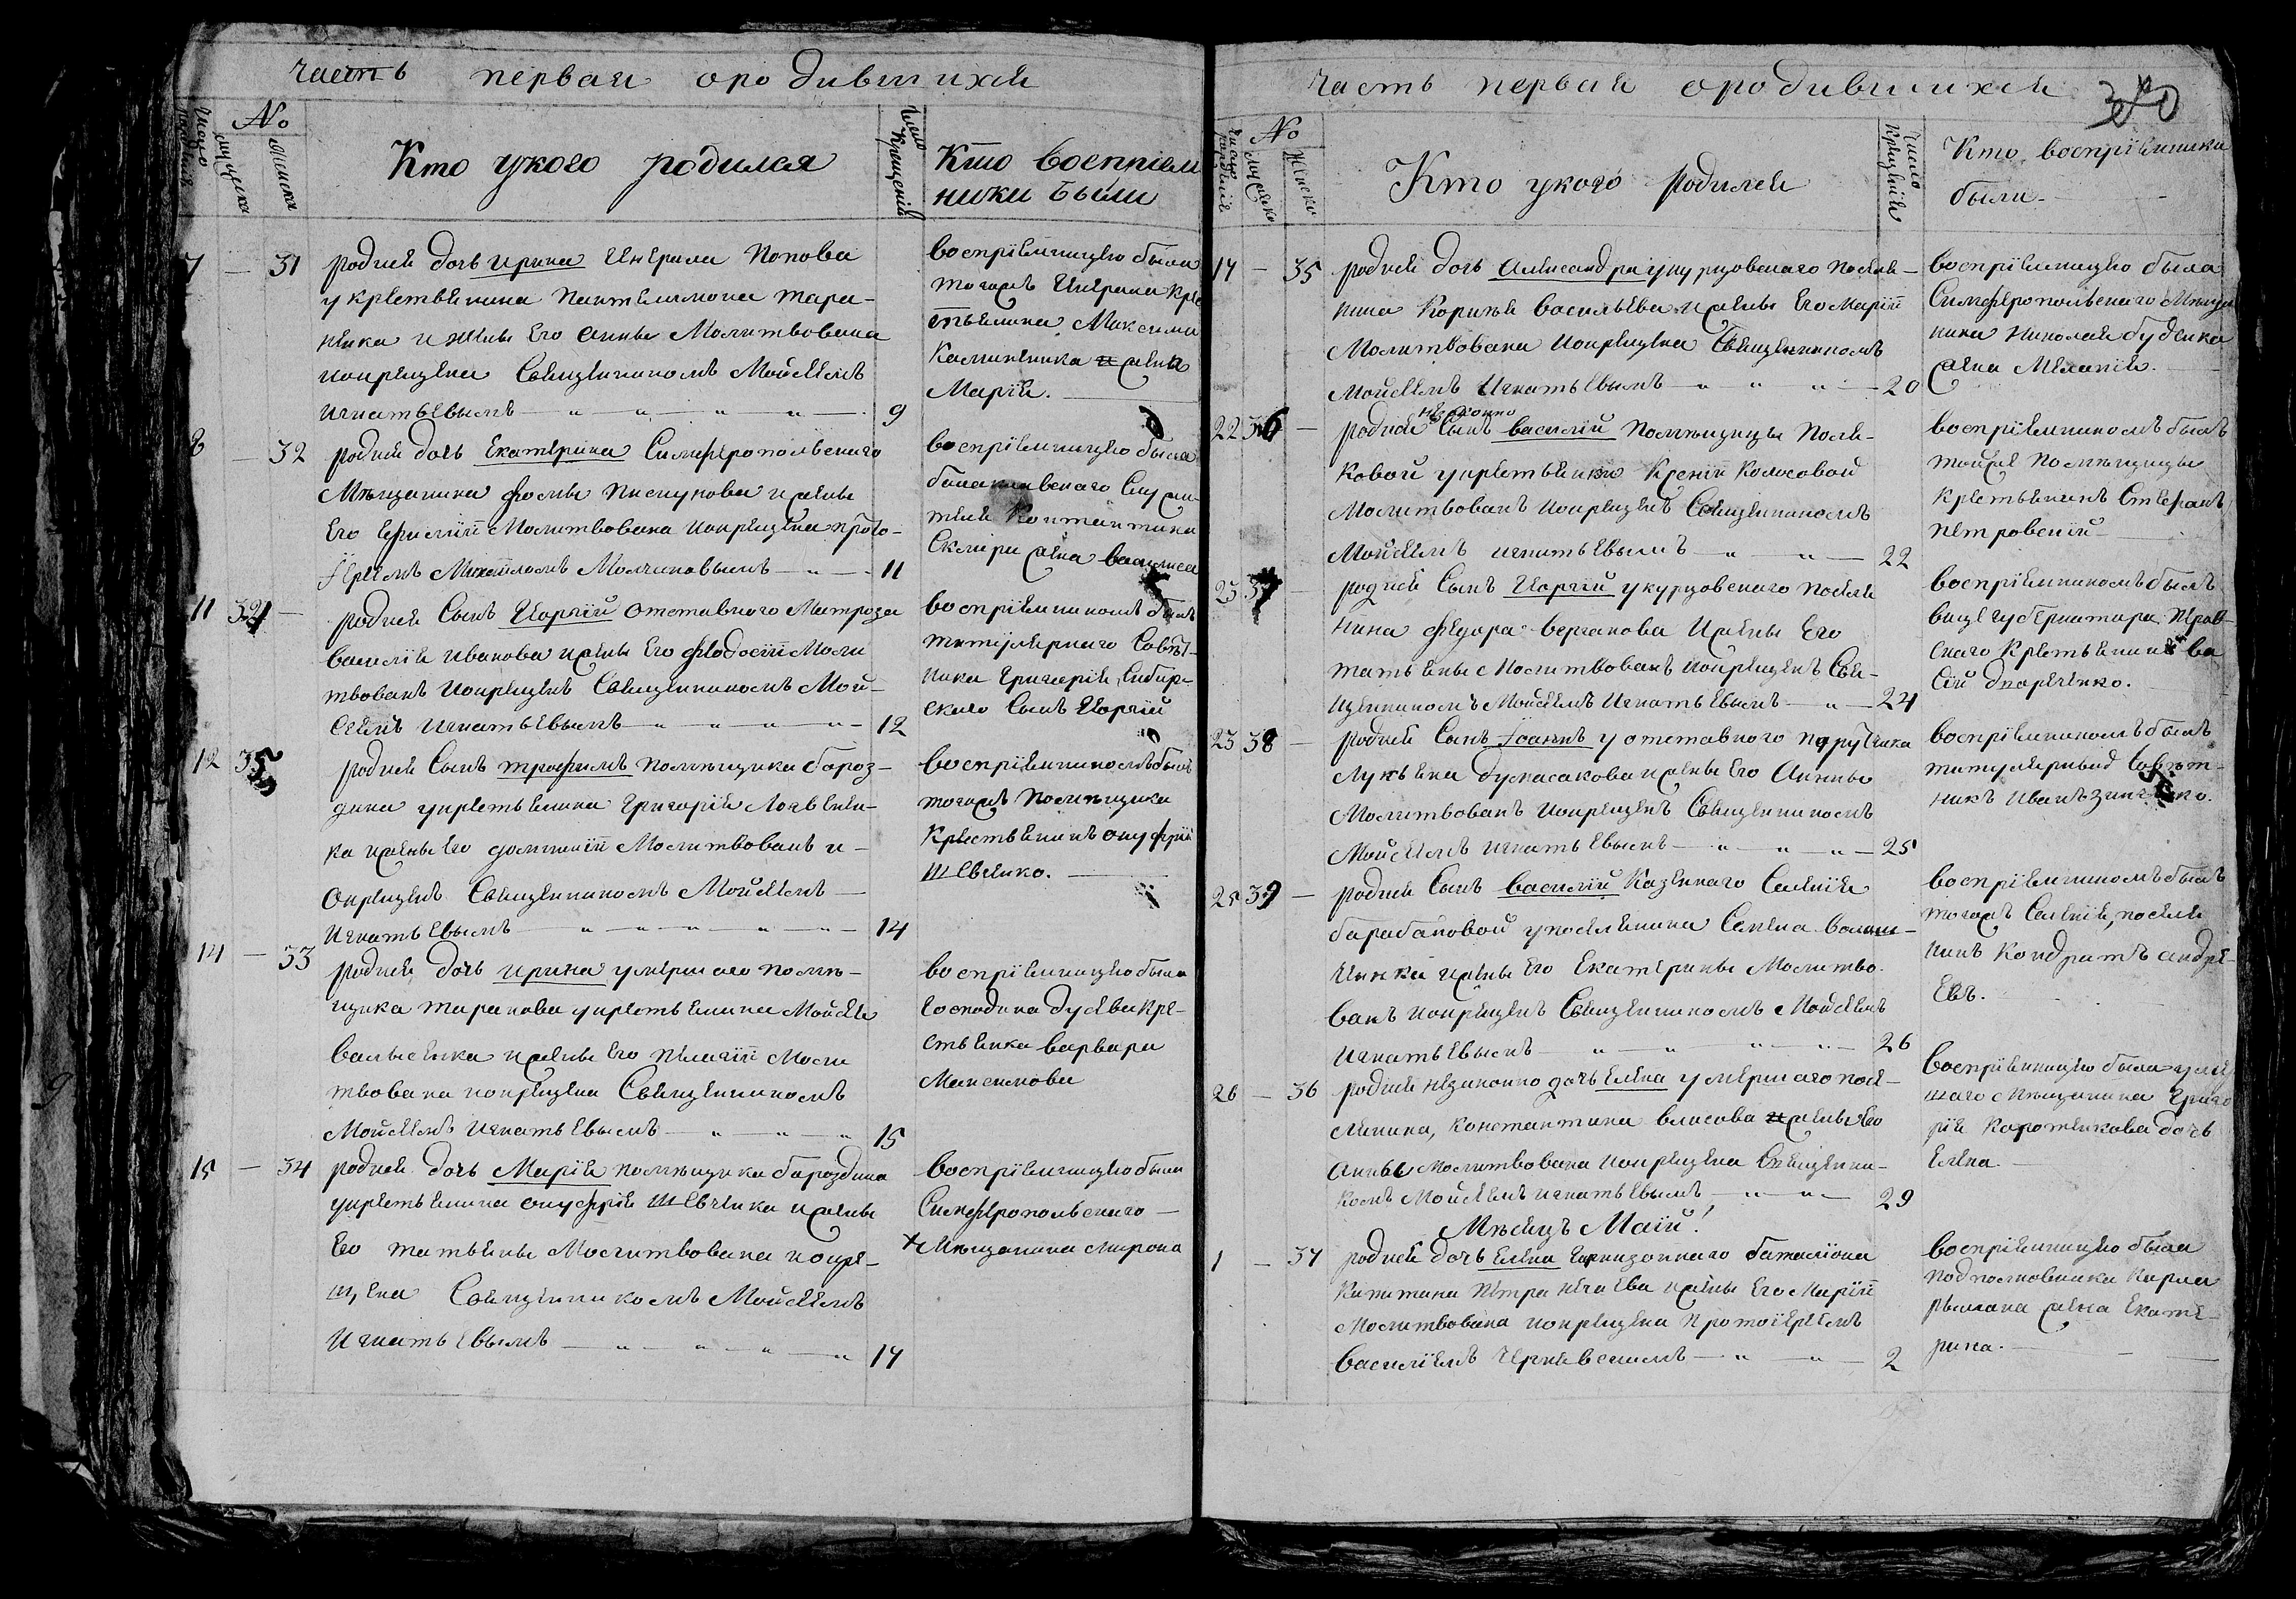 часть первая ородившихся
№
Число рождения
мужеска
женска
Кто укого родился
число Крещения
Кто Восприем
ники были
7 — 31 родися дочь Ирина Генерала Попова
у крестьянина Пантелимона Тара-
ника и жены Его Анны Молитвована
и окрещена Священником Моисеем
Игнатьевымъ — 9
восприемницею была
тогожъ Генерала кре
стьянина Максима
Калиникина жена
Мария.
8 — 32 родися дочь Екатерина Симферопольскаго
Мещанина Фомы Пискунова и жены
Его Ефимiи Молитвована и окрещена прото-
иереемъ Михаиломъ Молчановымъ — 11
восприемницею была
балаклавскаго
Константина
жена василиса
11 34 — родися Сынъ Георгий отставного Матроза
василiя иванова и жены Его Феодосiи Моли
твованъ и окрещенъ Священникомъ Мои-
сеемъ Игнатьевымъ — 12
восприемникомъ былъ
титулярнаго Совет-
ника Григорiя Сибир-
скаго Сынъ Георгий
12 35 родися Сынъ трофимъ помещика бароз-
дина укрестьянина Григорiя Логвенен-
ка и жены Его домникiи Молитвованъ и —
Окрещенъ Священникомъ Моисеемъ —
Игнатьевымъ — 14
восприемникомъ былъ
тогожъ помещика
Крестьянинъ онуфрiй
Шевченко.
14 — 33 родися дочь ирина умершаго поме-
щика таранова укрестьянина Моисея
Васысенка и жены Его Пелагiи Моли
твована и окрещена Священникомъ
Моисеемъ Игнатьевымъ — 15
восприемницею была
Господина дусева кре-
стьянка варвара
Максимова
15 — 34 родися дочь Мария помещика бароздина
укрестьянина онуфрiя Шевченка и жены
Его татьяны Молитвована и окре-
щена Священникомъ Моисеемъ
Игнатьевымъ — 17
восприемницею была
Симферопольскаго —
Мещанина мирона
часть первая ородившихся
№
Число рождения
Мужеско
Женско
Кто укого родился
Число Крещения
Кто восприемники
были —
17 — 35 родися дочь Александра укурцовскаго поселя-
нина Корнея васильева и жены Его Марiи
Молитвована и окрещена Священникомъ
Моисеемъ Игнатьевымъ — 20
восприемницею была
Симферопольскаго Меща
нина Николая буденка
жена Меланiя.
22 36 — родися незаконно Сынъ василий помещицы Поля-
ковой укрестьянки Ксенiи Колосовой
Молитвованъ и окрещенъ Священникомъ
Моисеемъ игнатьевымъ — 22
восприемникомъ былъ
тойже помещицы
крестьянинъ Стефанъ
петровский
23 37 — родися Сынъ Георгий укурцовскаго поселя
нина Федора верганова и жены Его
татьяны Молитвованъ и окрещенъ Свя-
щенникомъ Моисеемъ Игнатьевымъ — 24
восприемникомъ былъ
вице губернатора
скаго Крестьянинъ ва
сий
23 38 — родися Сынъ Iоаннъ у отставного поручика
Лукьяна думасакова и жены Его Анны
Молитвованъ и окрещенъ Священникомъ
Моисеемъ игнатьевымъ — 25
восприемникомъ былъ
титулярный Совет-
никъ Иванъ Зинченко.
25 39 — родися Сынъ василий казеннаго Селения
барабановой упоселянина Семена
и жены Его Екатерины Молитво-
ванъ и окрещенъ Священникомъ Моисеемъ
Игнатьевымъ — 26
восприемникомъ былъ
тогожъ Селения, поселя
нинъ Кондратъ андре-
евъ.
26 — 36 родися незаконно дочь Елена умершаго посе-
лянина, константина власова жены Его
Анны молитвована и окрещена Священни-
комъ Моисеемъ игнатьевымъ, — 29
восприемницею была умер
шаго мещанина Григо
рiя Коротенкова дочь
Елена.
Месяцъ Маiй!
1 — 37 родися дочь Елена Гарнизоннаго баталiона
Капитана Петра нечаева и жены Его Марiи
Молитвована и окрещена Протоiереемъ
василiемъ Чернявскимъ — 2
восприемницею была
подполковника Карла
жена Екате-
рина.